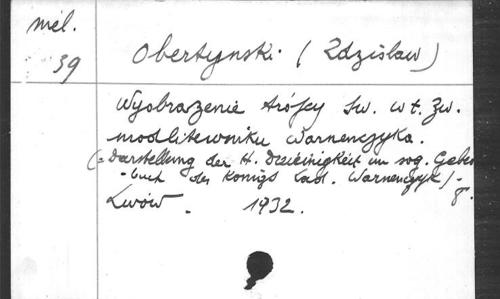 mél.
39
Obertynski. (Zdzisław)
Wyobrazenie trójcy Św. w t. zw.
modlitewniku Warnenczyka.
(= Darstellung der H. Dreieinigkeit im sog. Gebet
- buch des Königs Lad. Warnenczyk) -
Lwów. 1932. 8.